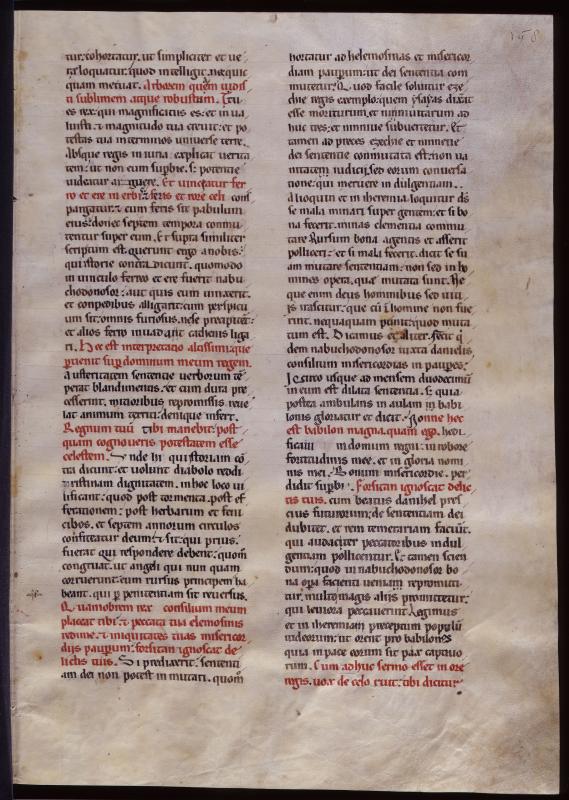 tur. cohortatur. ut simpliciter et ue
loquatur. quod intelligit. neque
quam metuat. Arborem quem uidisti
sublimem atque robustam. Tu
es rex. qui magnificatus es. et in ua
luisti. & magnitudo tua creuit. et po
testas tua in terminos uniuerse terre.
Absque regis iniuria explicat uerita
tem. ut non eum supbie. s; potentie
uideatur arguere. Et uinciatur fer
ro et ere in erbis & feris et rore celi con
pargatur. & cum feris sit pabulum
eius. donec septem tempora commu
tentur super eum. Et supra similiter
scriptum est. querunt ergo a nobis.
qui istorie contradicunt. quomodo
in uinculo ferreo et ere fuerit nabu
chodonosor. aut quis eum uinxerit.
et conpedibus alligarit. cum perspicu
um sit. omnis furiosus. ne se precipitet.
et alios ferro inuadant catenis liga
ri. Hec est interpretatio altissimi. que
peruenit sup dominum meum regem.
Austeritatem sententie uerborum te
perat blandimentis. et cum dura pre
cesserint. mitioribus repromissis. reue
lat animum territi. denique infert.
Regnum tuum tibi manebit. post
quam cognoueris potestatem esse
celestem. Unde hi qui istoriam con
tradicunt. et uolunt diabolo reddi
pristinam dignitatem. in hoc loco ui
lificant. quod post tormenta. post ef
ferationem. post herbarum et feni
cibos. et septem annorum circulos
confiteatur deum. & sit. qui prius.
fuerat qui respondere debent. quomodo
congruat. ut angeli qui nunquam
corruerunt. eum rursus principem ha
beant. qui p penitentiam sit reuersus.
Quamobrem rex consilium meum
placeat tibi. & peccata tua elemosinis
redime. & iniquitates tuas misericor
diis pauperum. forsitan ignoscat de
lictis tuis. Si predixerit. sententi
am dei non potest inmutari. quomodo
hortatur ad helemosinas et misericor
diam pauperum. ut dei sententia com
mutetur. Quod facile soluitur eze
chie regis exemplo. quem ysayas dixit
esse moriturum. et niniuitarum ad
huc tres. et niniue subuertetur. Et
tamen ad preces ezechie et niniue
dei sententia conmutata est. non ua
nitatem iudicii. sed eorum conuersa
tione. qui meruere indulgentiam.
Alioquin et in iheremia loquitur ds
se mala minari super gentem. et si bo
na fecerit. minas clementia commu
tare Rursum bona agentis et asserit
polliceri. et si mala fecerit. dicit se su
am mutare sententiam. non sed in ho
mines opera. que mutata sunt. Ne
que enim deus hominibus sed uiti
is irascitur. que cum in homine non fue
rint. nequaquam punit. quod muta
tum est. Dicamus et aliter. fecit qui
dem nabuchodonosor iuxta danielis
consilium misericordias in pauperes.
Et circo usque ad mensem duodecimum
in eum est dilata sententia. s; quia
postea ambulans in aulam in babi
lonis gloriatur et dicit. Nonne hec
est babilon magna. quam ego. hedi
ficaui in domum regni. in robore
fortitudinis mee. et in gloria nomi
nis mei. Bonum misericordie. per
didit supbi. Forsitan ignoscat delic
tis tuis. cum beatus danihel pres
cius futurorum. de sententia dei
dubitet. et rem temerariam faciunt.
qui audacter peccatoribus indul
gentiam pollicentur. Et tamen scien
dum. quod in nabuchodonosor bo
na opa facienti ueniam repromitti
tur. multo magis aliis promittetur.
qui leuiora peccauerint Legimus
et in iheremiam preceptum populum
iudeorum. ut orent pro babilonis
quia in pace eorum sit pax captiuo
rum. Cum adhuc sermo esset in ore
regis. uox de celo ruit. tibi dicitur